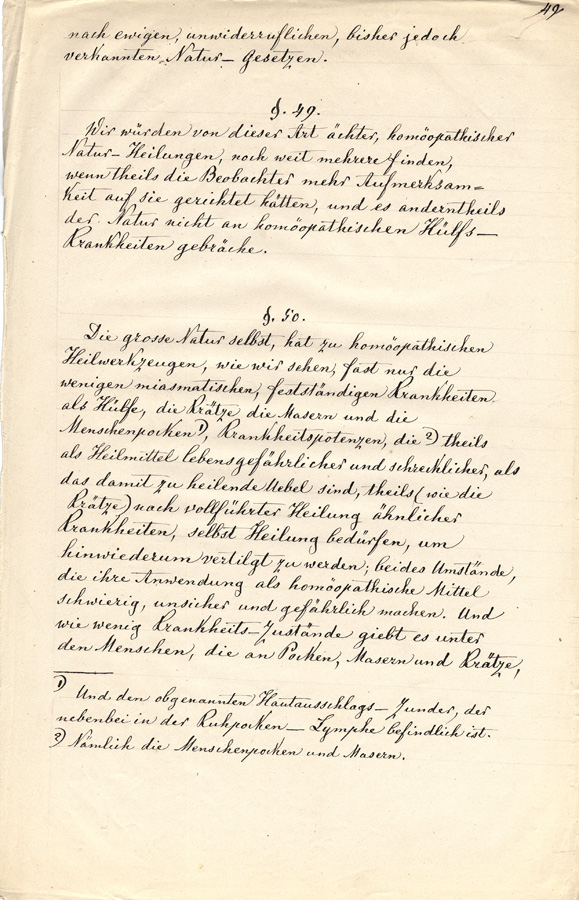 49
nach ewigen, unwiderruflichen, bisher jedoch
verkannten Natur- Gesetzen.
§. 49.
Wir würden von dieser Art ächter, homöopathischer
Natur- Heilungen, noch weit mehrere finden,
wenn theils die Beobachter mehr Aufmerksam=
keit auf sie gerichtet hätten, und es anderntheils
der Natur nicht an homöopathischen Hülfs-
Krankheiten gebräche.
§. 50.
Die grosse Natur selbst, hat zu homöopathischen
Heilwerkzeugen, wie wir sehen, fast nur die
wenigen miasmatischen, festständigen Krankheiten
als Hülfe, die Krätze die Masern und die
Menschenpocken 1), Krankheitspotenzen, die 2) theils
als Heilmittel lebensgefährlicher und schrecklicher, als
das damit zu heilende Uebel sind, theils (wie die
Krätze) nach vollführter Heilung ähnlicher
Krankheiten, selbst Heilung bedürfen, um
hinwiederum vertilgt zu werden; beides Umstände,
die ihre Anwendung als homöopathische Mittel
schwierig, unsicher und gefährlich machen. Und
wie wenig Krankheits-Zustände giebt es unter
den Menschen, die an Pocken, Masern und Krätze,
1) Und den obgenannten Hautausschlags- Zunder, der
nebenbei in der Kuhpocken- Lymphe befindlich ist.
2) Nämlich die Menschenpocken und Masern.